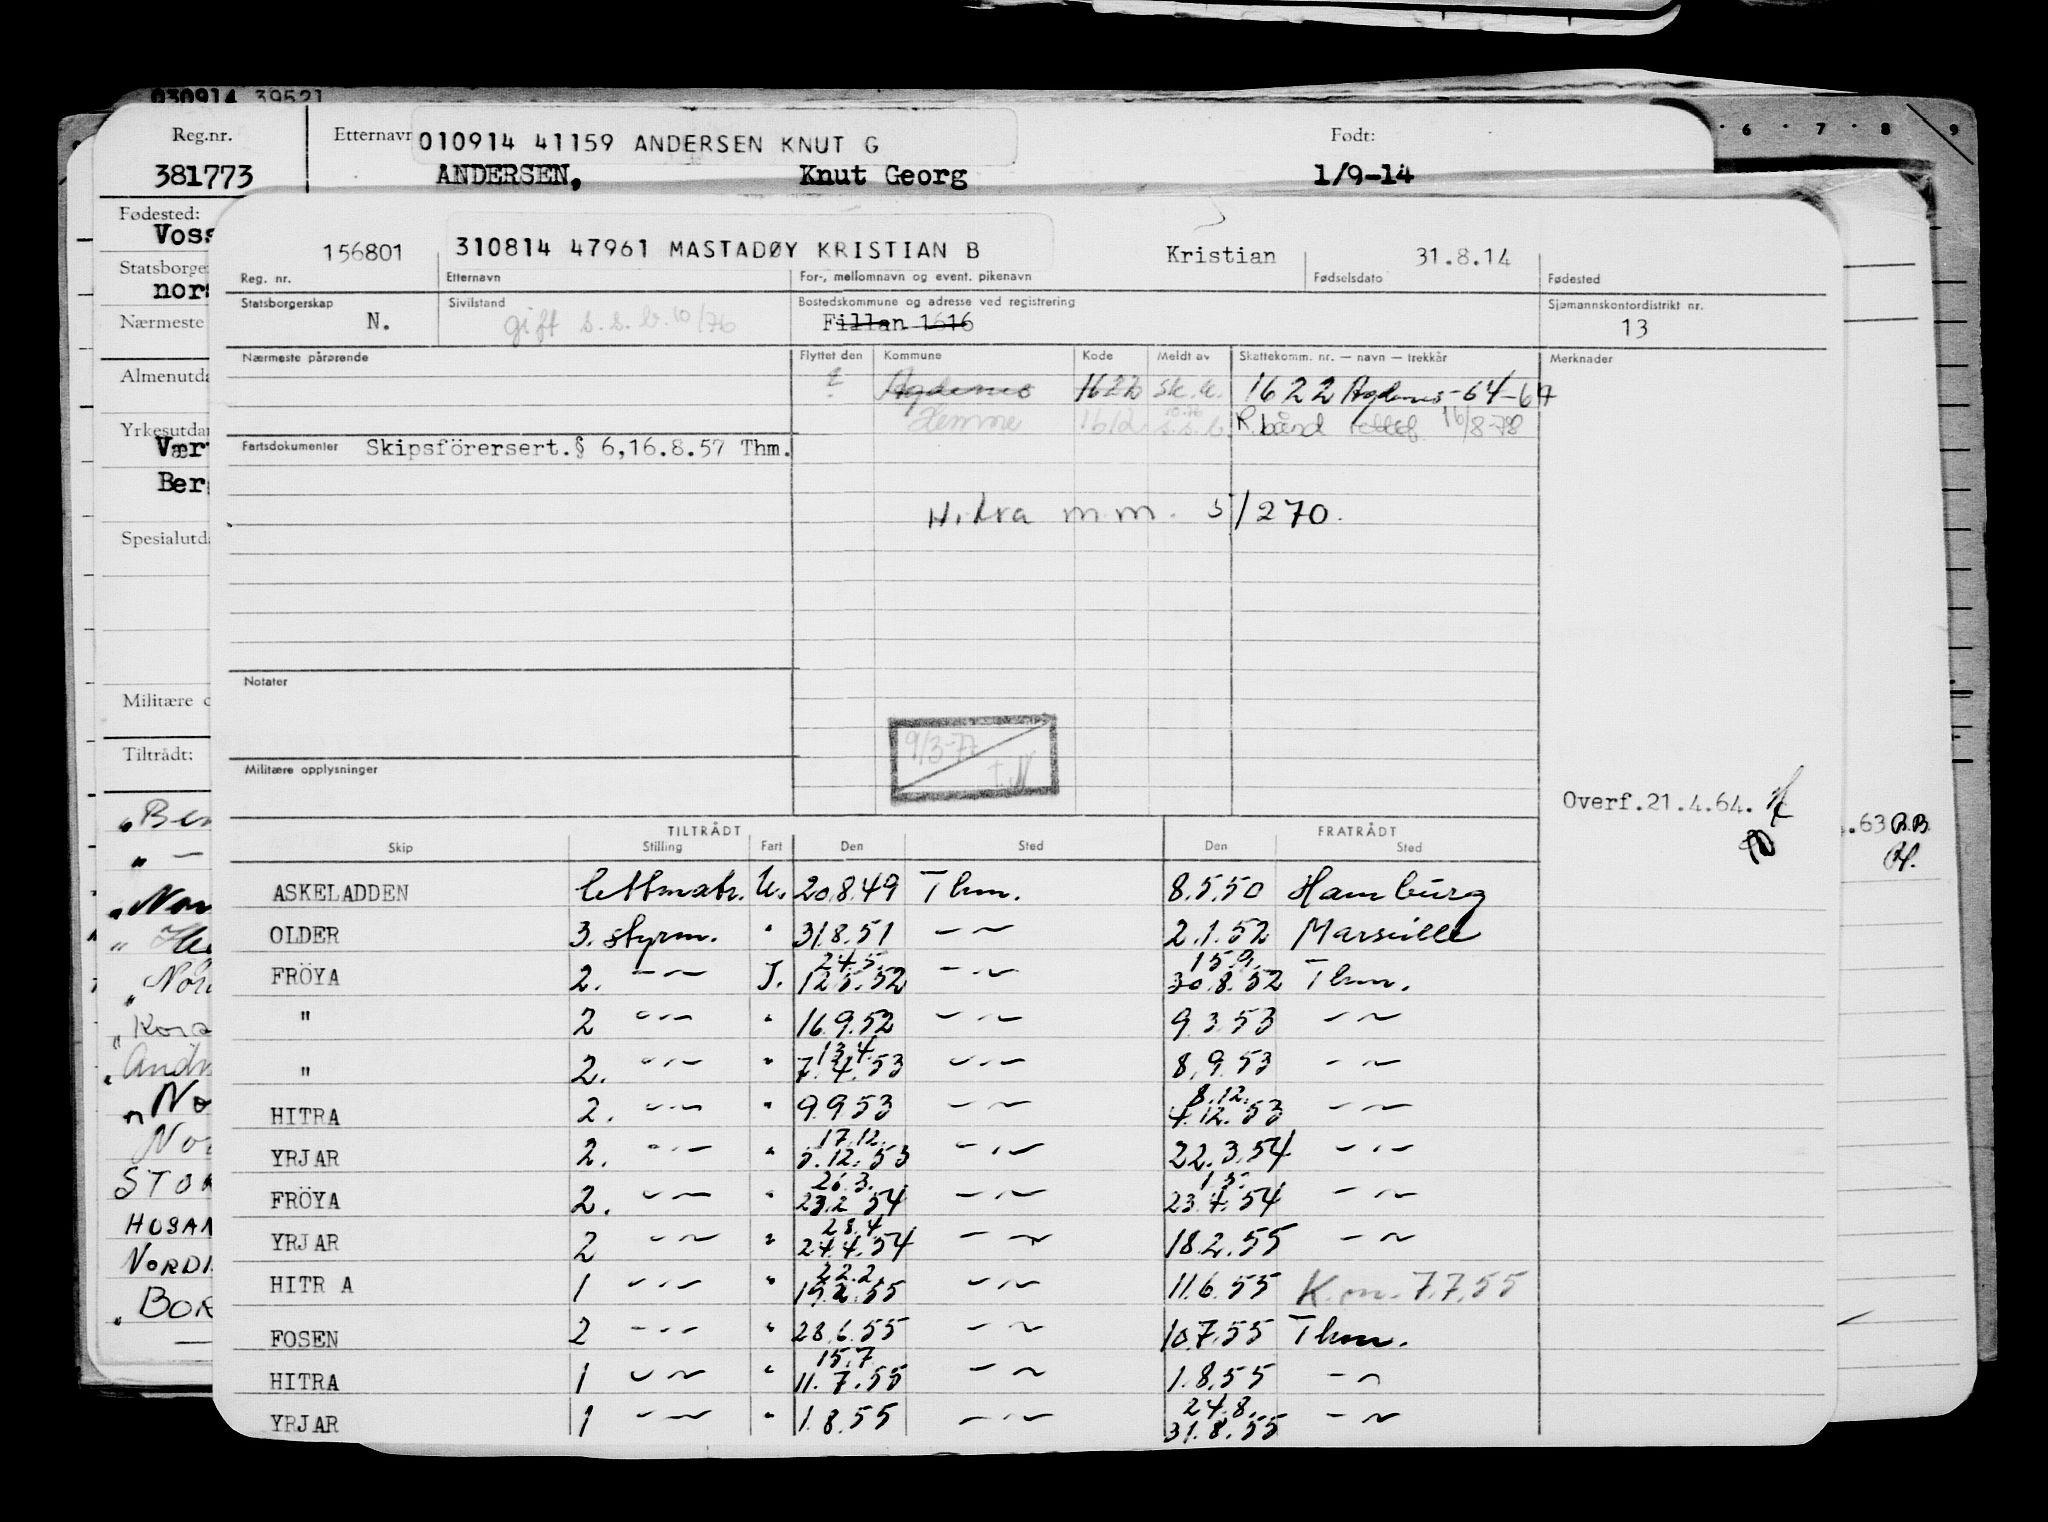 030914 39521
Reg.nr. Etternavn 010914 41159 ANDERSEN KNUT G Født:
381773 ANDERSEN, Knut Georg 1/9-14
6 7 8 9
Fødested:
Voss
Statsborger
nors
Nærmeste
Almenutda
Yrkesutdan
Vær
Ber
Spesialutda
Militære o
Tiltrådt:
156801 310814 47961 MASTADØY KRISTIAN B Kristian 31.8.14
Reg. nr. Etternavn For-, mellomnavn og event. pikenavn Fødselsdato Fødested
Statsborgerskap Sivilstand Bostedskommune og adresse ved registrering Sjømannskontordistrikt nr.
N. gift s.s.b. 10/76 Fillan 1616 13
Nærmeste pårørende Flyttet den Kommune Kode Meldt av Skattekomm. nr. — navn — trekkår Merknader
? Agdenes 1622 sk.k. 1622 Agdenes-64-67
Hemne 1612 10.76 s.s.b. R.bånd rettet 16/8-78
Fartsdokumenter Skipsförersert.§ 6,16.8.57 Thm.
Hitra m.m. 5/270.
Notater
9/3-77
Militære opplysninger
Overf.21.4.64.
.63 B.B.
TILTRÅDT FRATRÅDT
Skip Stilling Fart Den Sted Den Sted
ASKELADDEN lettmatr. U. 20.8.49 Thm. 8.5.50 Hamburg
OLDER 3. styrm. " 31.8.51 — " — 2.1.52 Marseille
24.5. 15.9.
FRÖYA 2. — " — I. 12.5.52 — " — 30.8.52 Thm.
" 2 — " — " 16.9.52 — " — 9.3.53 — " —
13.4.
" 2. — " — " 7.4.53 — " — 8.9.53 — " —
8.12.
HITRA 2. — " — " 9.9.53 — " — 4.12.53 — " —
17.12.
YRJAR 2. — " — " 5.12.53 — " — 22.3.54 — " —
26.3. 1.5.
FRÖYA 2. — " — " 23.2.54 — " — 23.4.54 — " —
28.4.
YRJAR 2 — " — " 24.4.54 — " — 18.2.55 — " —
22.2.
HITR A 1 — " — " 19.2.55 — " — 11.6.55 K.m. 7.7.55
FOSEN 2 — " — " 28.6.55 — " — 10.7.55 Thm.
15.7
HITRA 1 — " — " 11.7.55 — " — 1.8.55 — " —
24.8.
YRJAR 1 — " — " 1.8.55 — " — 31.8.55 — " —
"Ber
" —
"Nor
"
"Nor
"Kora
"Andr
"No
Nor
STOR
HOSAN
NORDI
"BOR